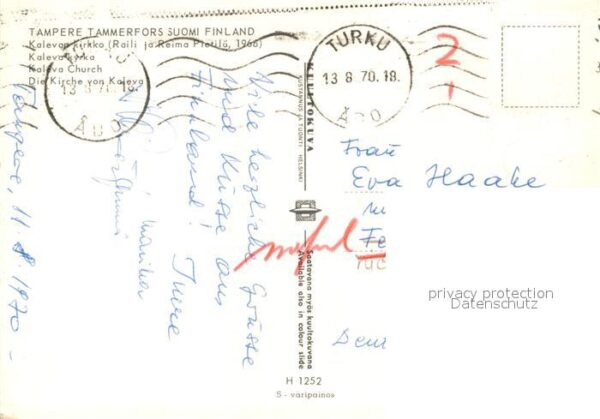 TAMPERE TAMMERFORS SUOMI FINLAND
Kalevan kirkko (Raili ja Reima Pietilä, 1966)
Kaleva kyrka
Kaleva Church
Die Kirche von Kaleva
TURKU
13 8 70. 18.
ÅBO
13 8 70. 18.
ÅBO
2
1
Tampere, 11.8.1970 -
Viele herzliche Grüsse
und Küsse aus
Finnland! Eure
Monika
KUULTOKUVA
KUSTANNUS JA TUONTI HELSINKI
Saatavana myös kuultokuvana
Available also in colour slide
Frau
Eva Haake
H 1252
S - varipainos
privacy protection
Datenschutz